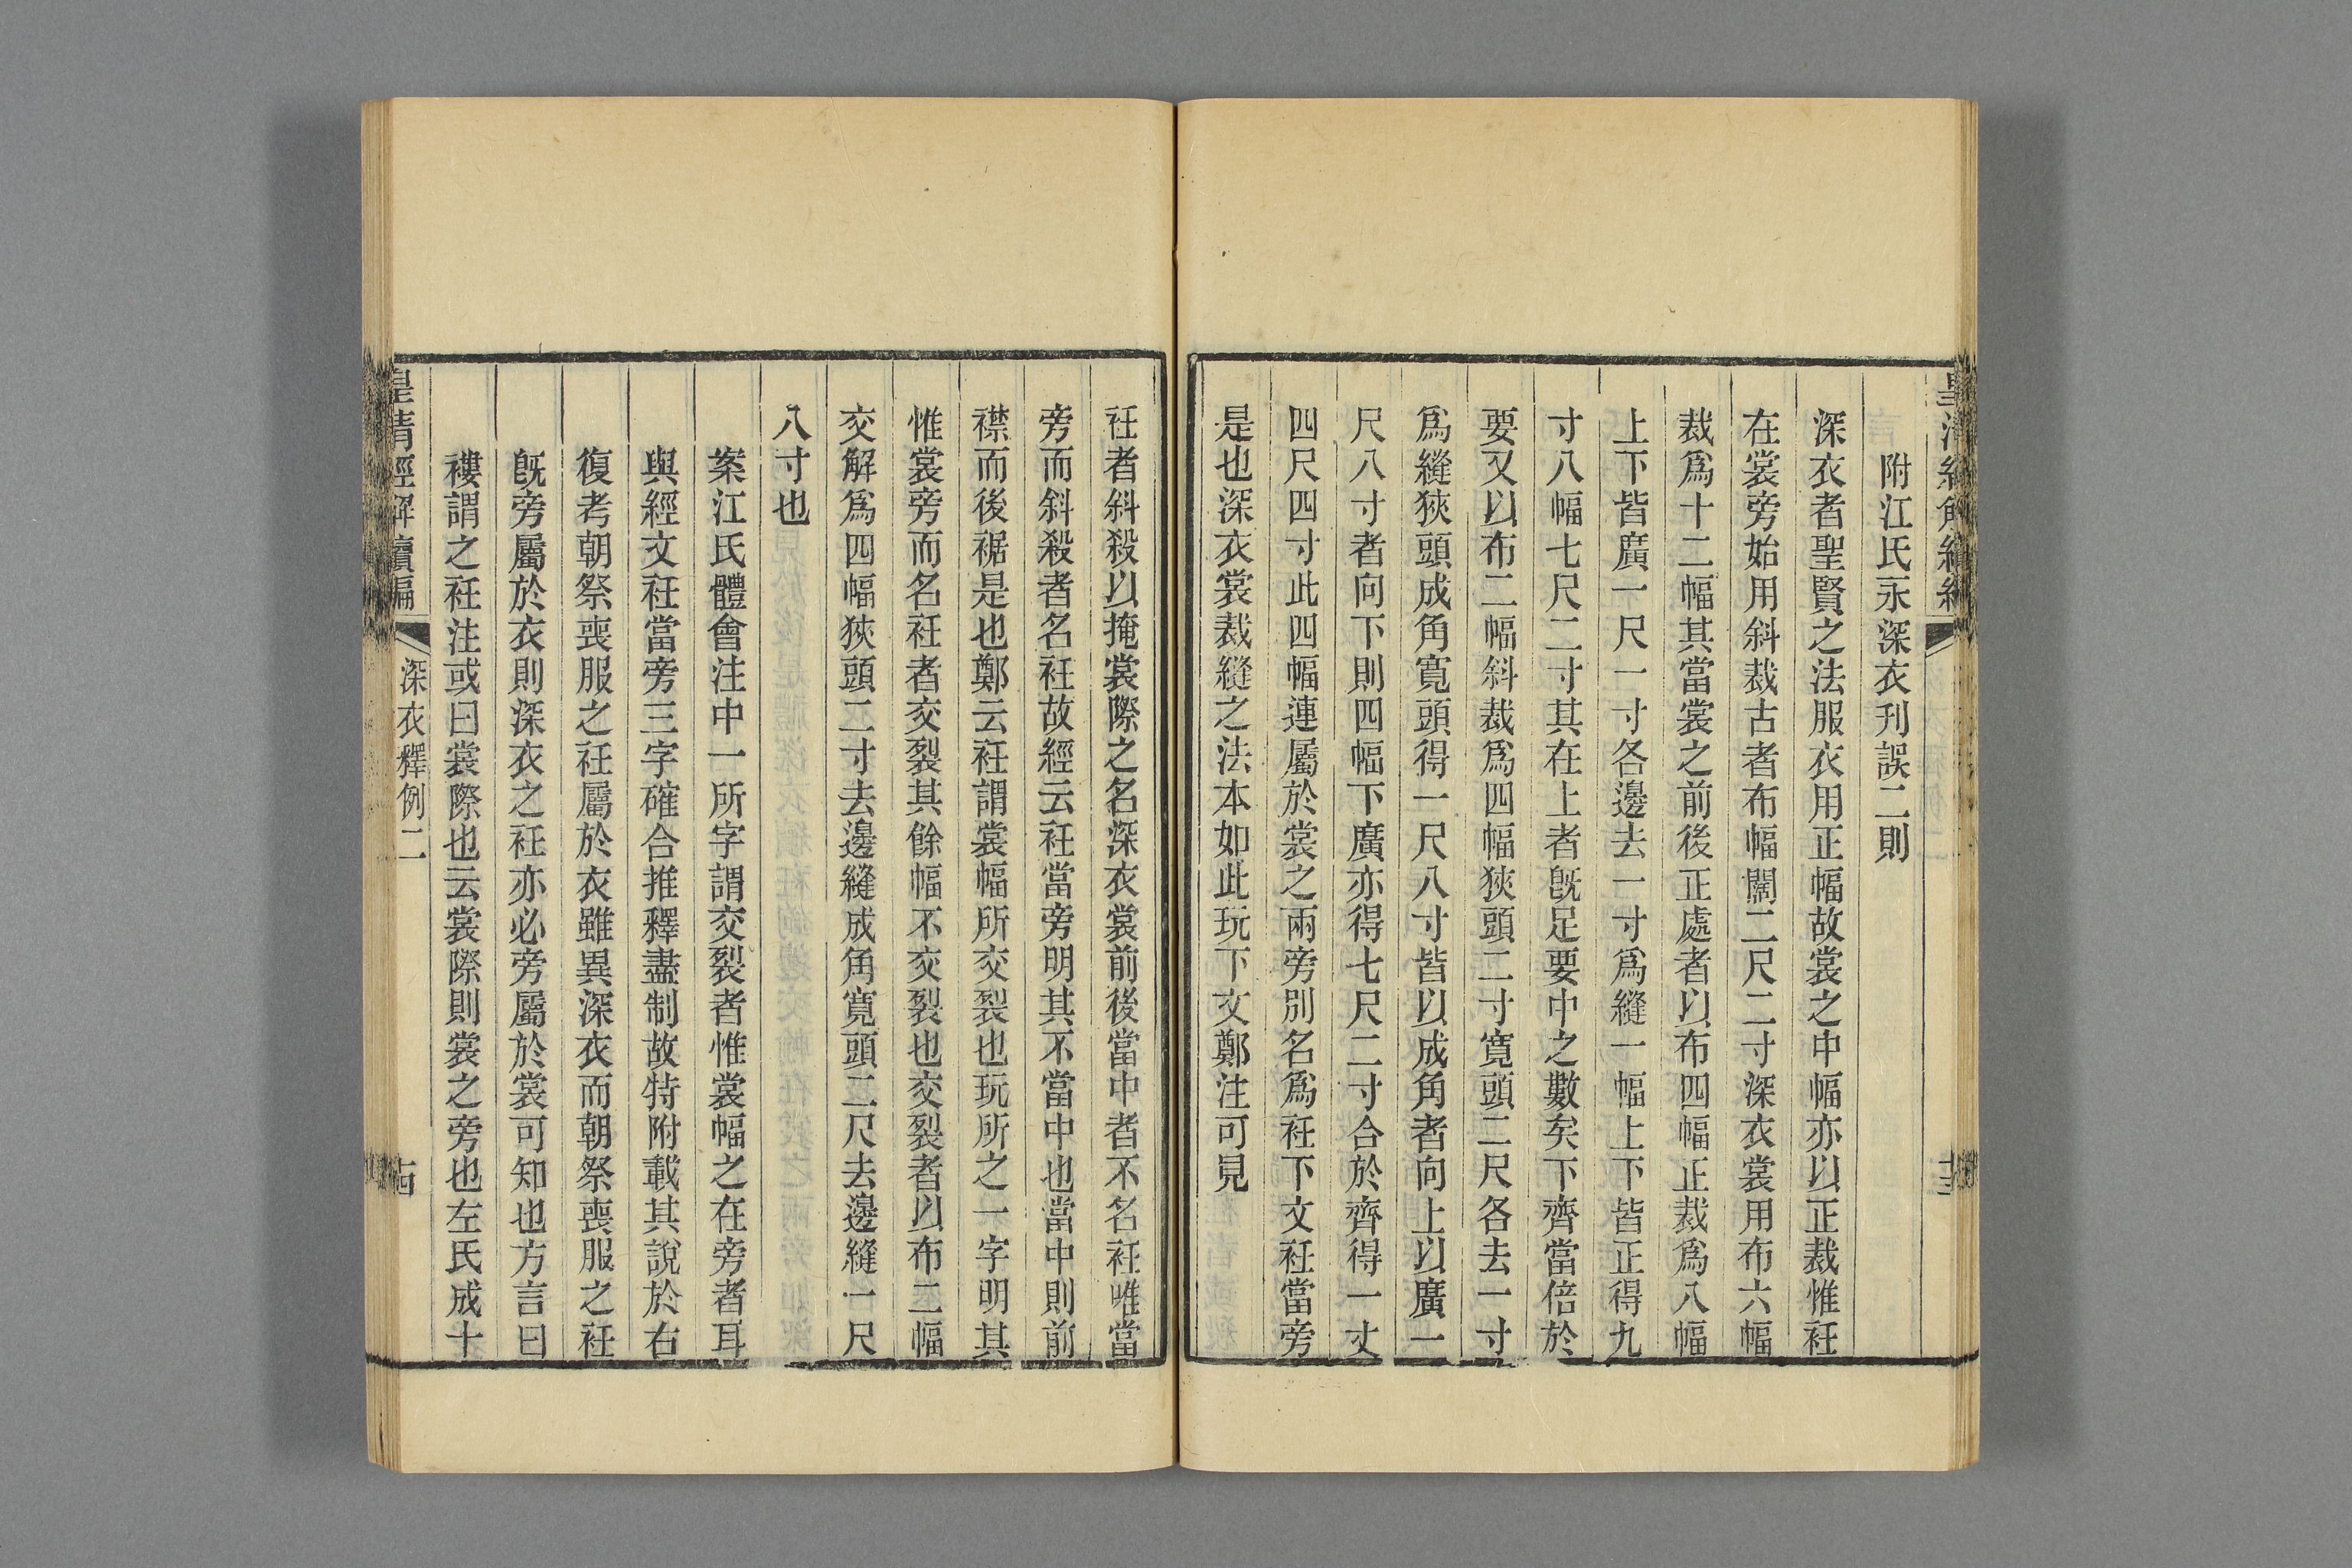 附江氏永深衣刋誤二則
深衣者聖賢之法服衣用正幅故裳之中幅亦以正裁惟衽
在裳旁始用斜裁古者布幅闊二尺二寸深衣裳用布六幅
裁爲十二幅其當裳之前後正處者以布四幅正裁爲八幅
上下皆廣一尺一寸各邊去一寸爲縫一幅上下皆正得九
寸八幅七尺二寸其在上者旣足要中之數矣下齊當倍於
要又以布二幅斜裁爲四幅狹頭二寸寬頭二尺各去一寸
爲縫狹頭成角寬頭得一尺八寸皆以成角者向上以廣一
尺八寸者向下則四幅下廣亦得七尺二寸合於齊得一丈
四尺四寸此四幅連屬於裳之兩旁別名爲衽下文衽當旁
是也深衣裳裁縫之法本如此玩下文鄭注可見
衽者斜殺以掩裳際之名深衣裳前後當中者不名衽唯當
旁而斜殺者名衽故經云衽當旁明其不當中也當中則前
襟而後裾是也鄭云衽謂裳幅所交裂也玩所之一字明其
惟裳旁而名衽者交裂其餘幅不交裂也交裂者以布二幅
交解爲四幅狹頭二寸去邊縫成角寬頭二尺去邊縫一尺
八寸也
案江氏體會注中一所字謂交裂者惟裳幅之在旁者耳
與經文衽當旁三字確合推釋盡制故特附載其說於右
復考朝祭喪服之衽屬於衣雖異深衣而朝祭喪服之衽
旣旁屬於衣則深衣之衽亦必旁屬於裳可知也方言曰
褸謂之衽注或曰裳際也云裳際則裳之旁也左氏成十
皇清經解續編
深衣釋例二
十四